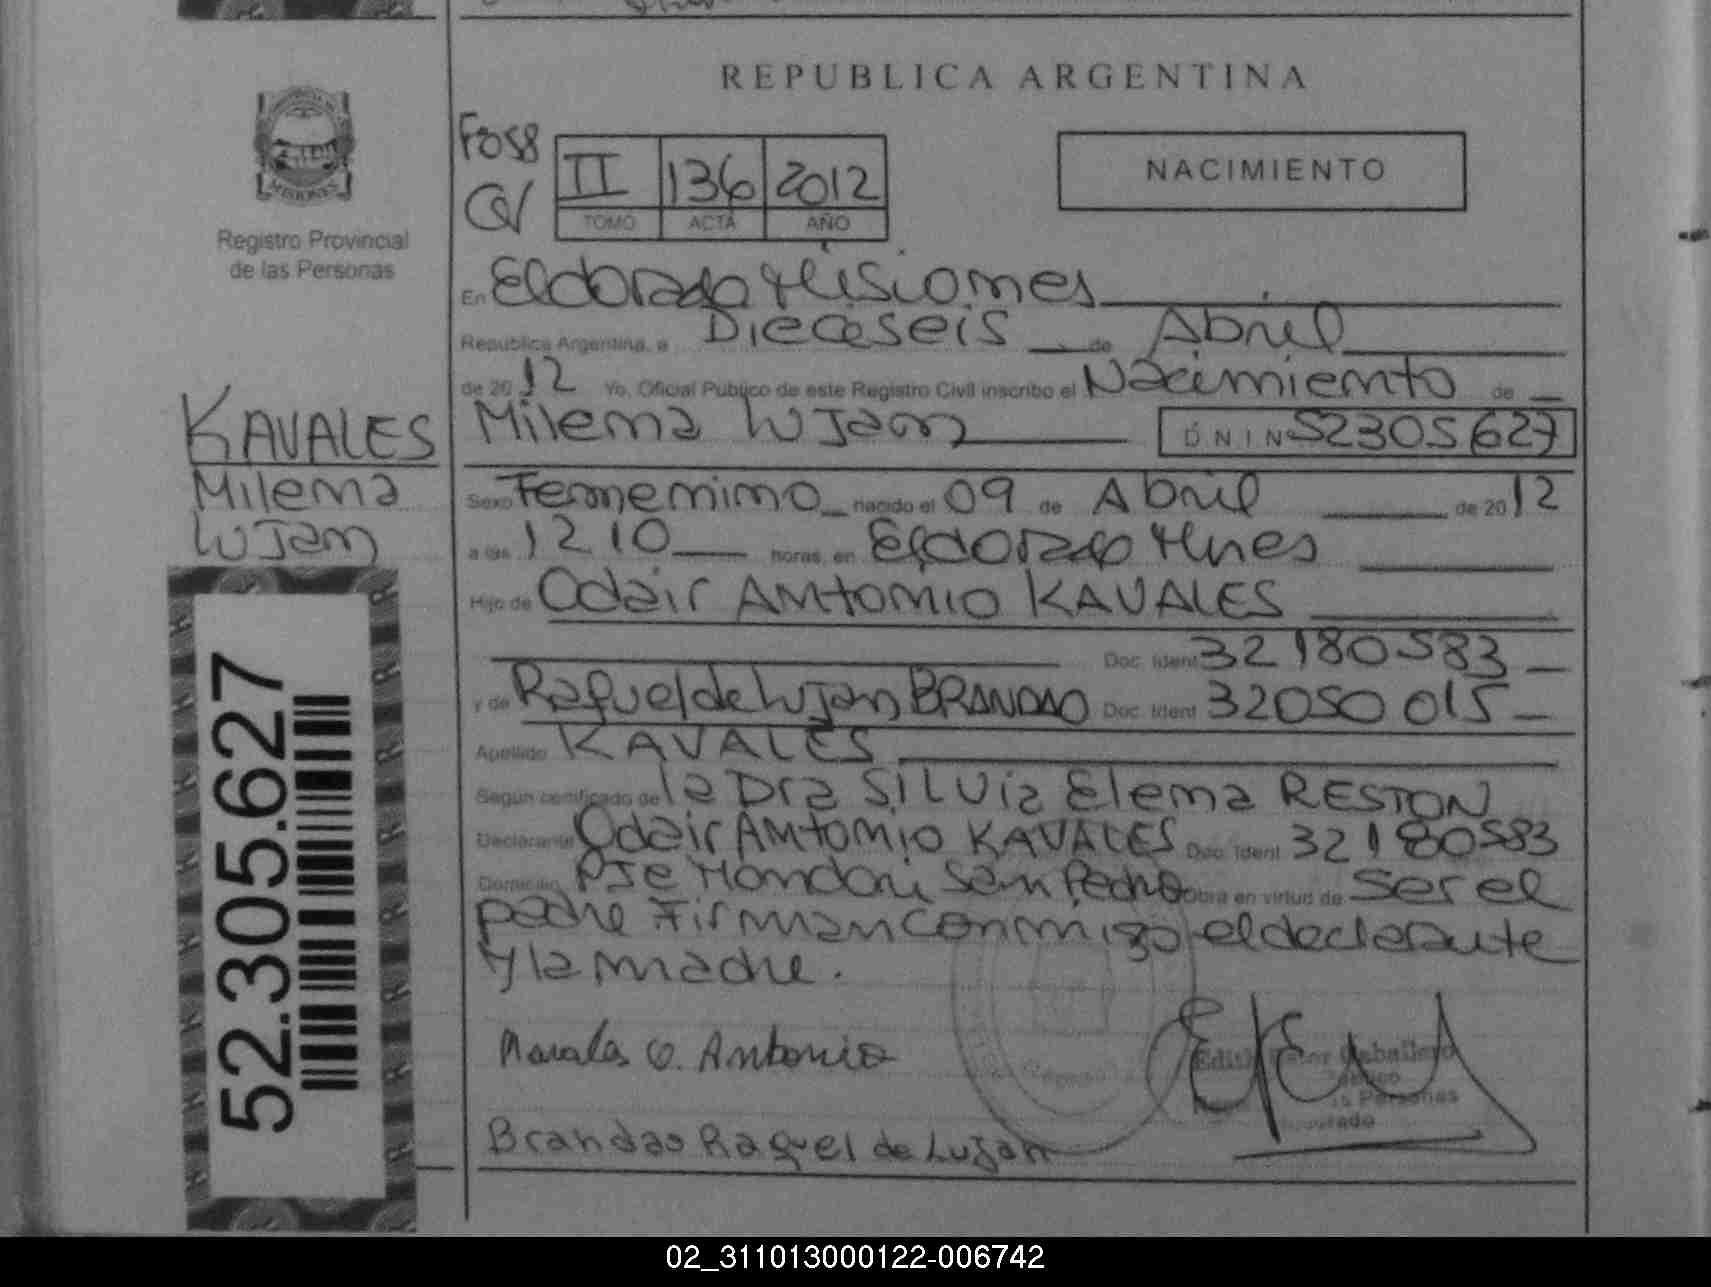 REPUBLICA ARGENTINA
NACIMIENTO
Fo58
II 136 2012
TOMO ACTA AÑO
MISIONES
Registro Provincial
de las Personas
En Eldorado Misiones
Republica Argentina, a Dieceseis de Abril
de 2012 Yo, Oficial Publico de este Registro Civil inscribo el Nacimiento de
Milena Lujan D N I Nº 52305627
KAVALES
Milena
Lujan
Sexo Femenino nacido el 09 de Abril de 2012
a las 12 10 horas, en Eldorado Mnes
Hijo de Odair Antonio KAVALES
Doc. Ident 32180583
y de Raquel de Lujan BRANDAO Doc. Ident 32050015
Apellido KAVALES
Según certificado de la Dra SILVia Elena RESTON
Declarante Odair Antonio KAVALES Doc. Ident 32180583
Domicilio Pje Mondori San Pedro Obra en virtud de ser el
padre Firman conmigo el declarante
y la madre.
52.305.627
O. Antonio
Brandao Raquel de Lujan
Edith Caballero
02_311013000122-006742